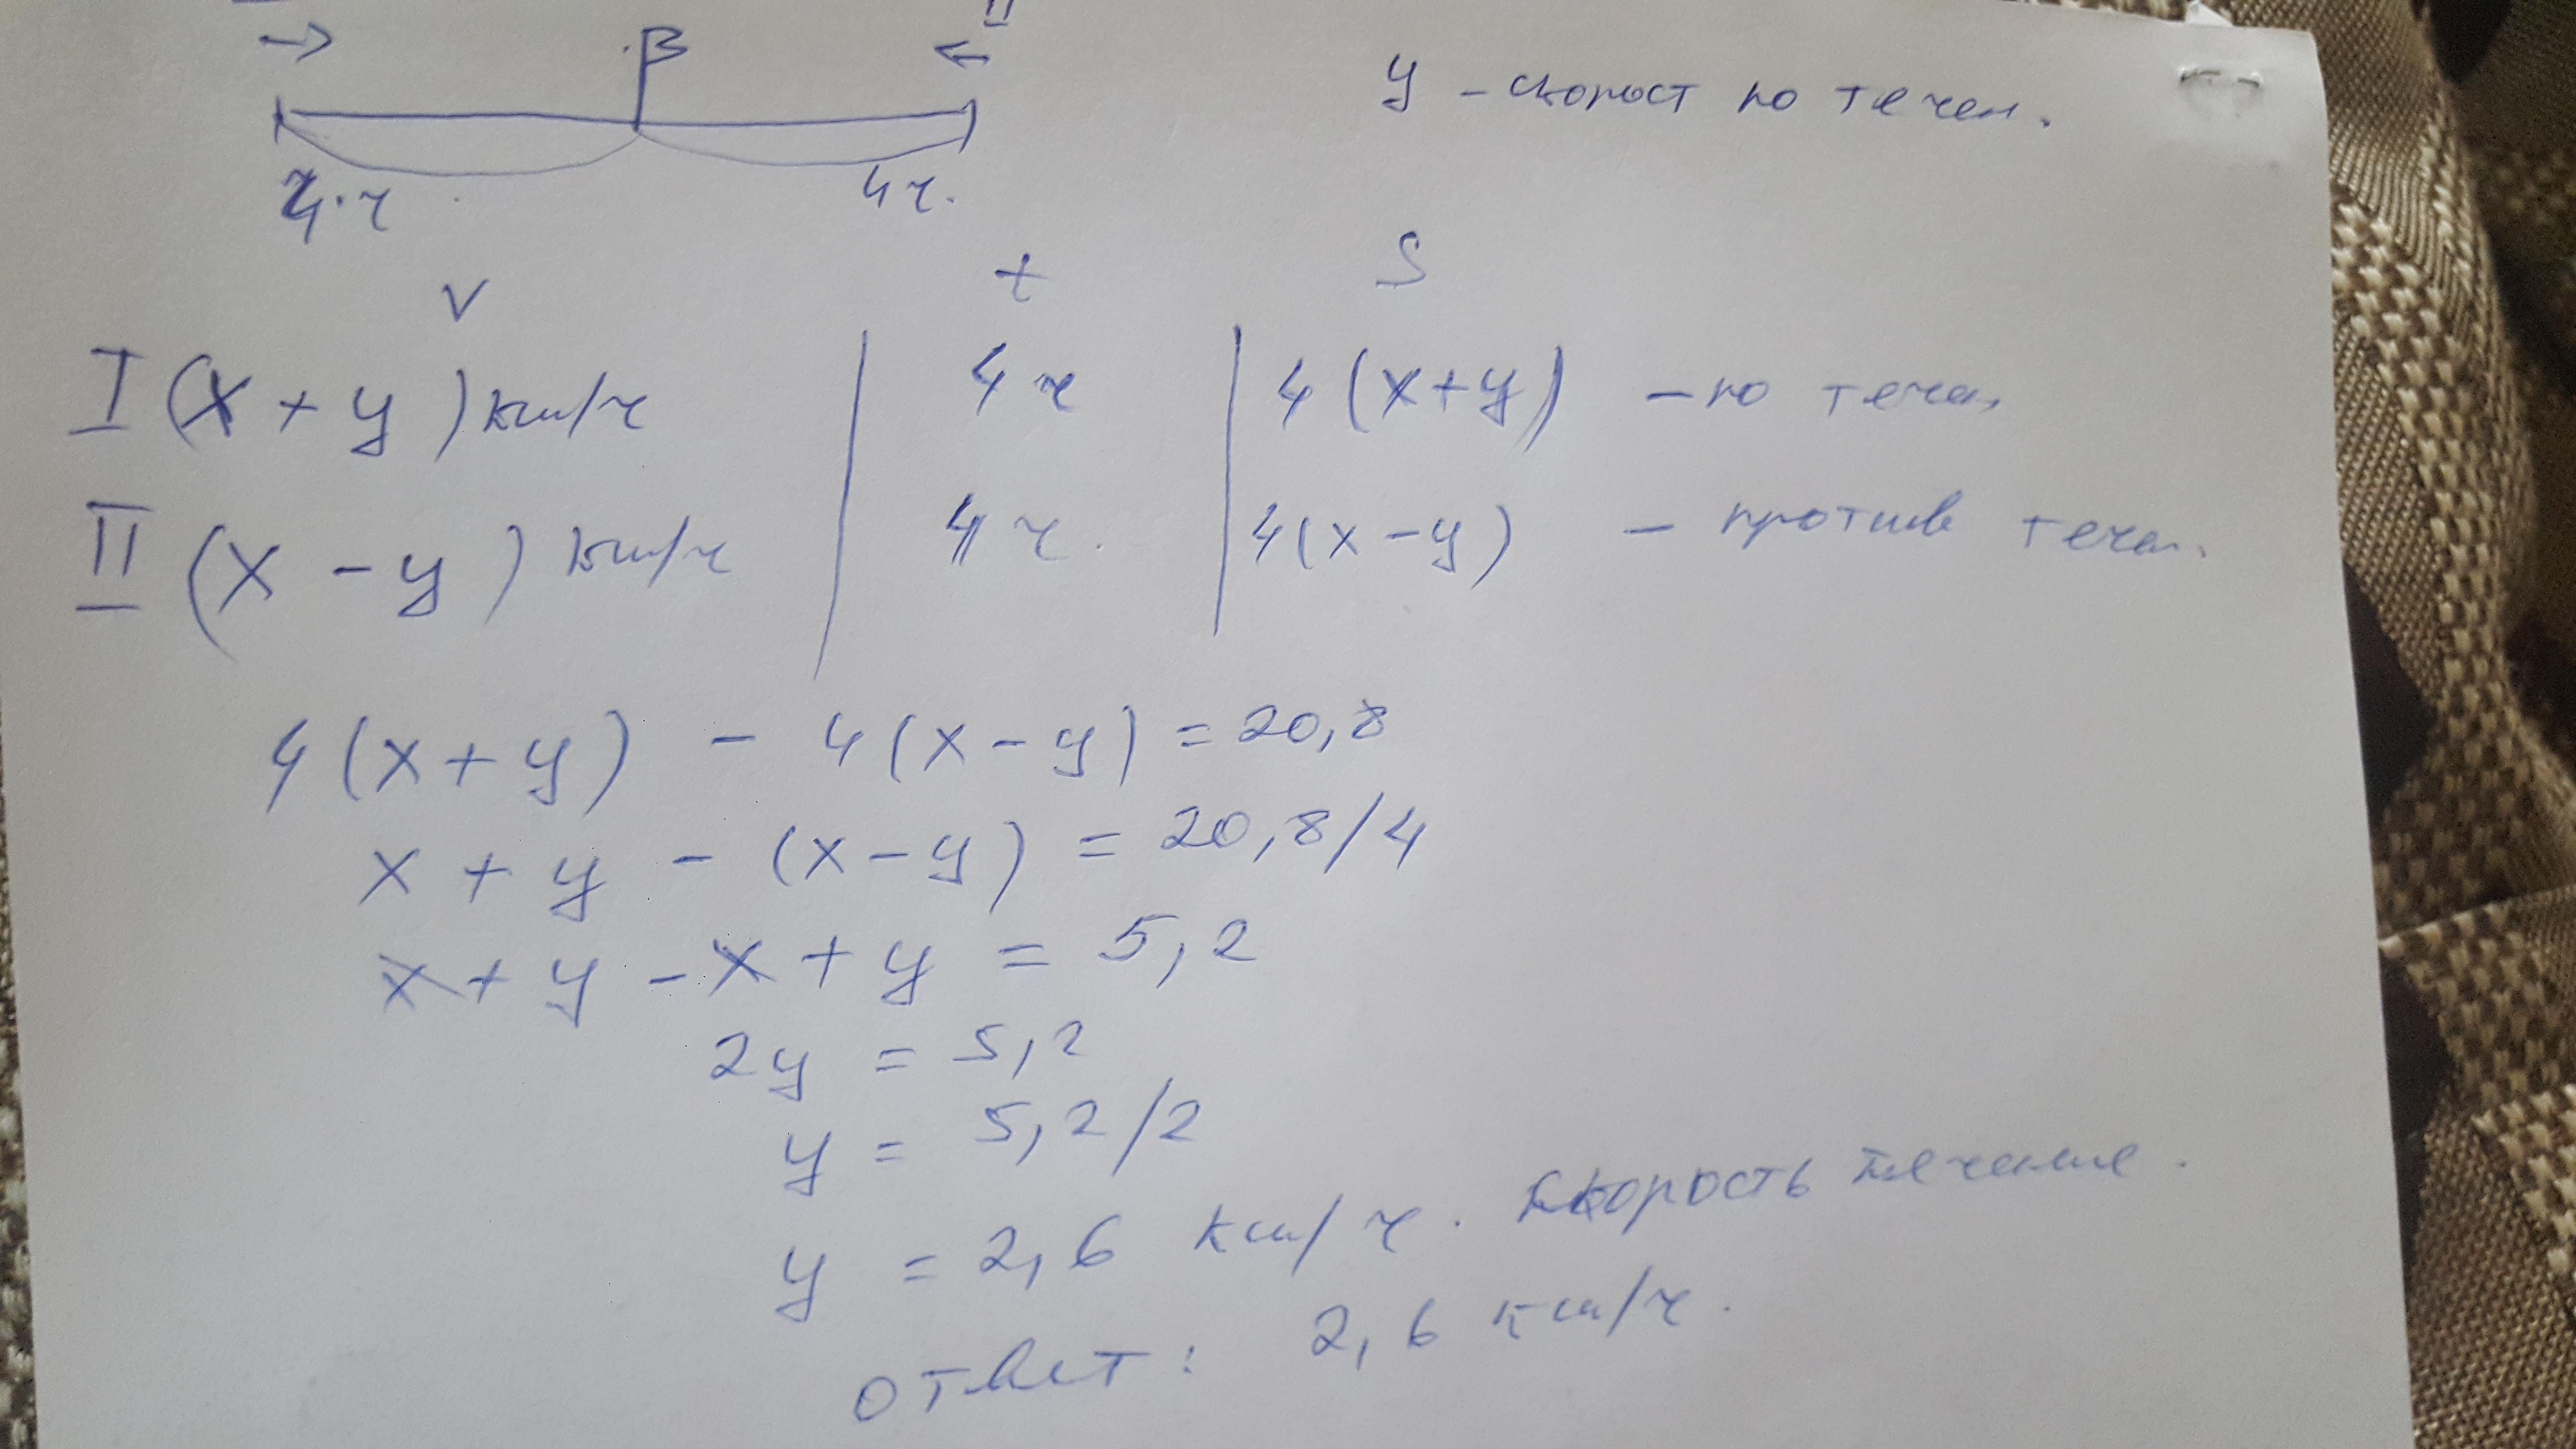 II
β
y - скорост по течен.
4·ч 4ч.
v t S
I (x + y) км/ч 4ч 4(x+y) - по течен.
II (x - y) км/ч 4ч. 4(x-y) - против течен.
4(x+y) - 4(x-y) = 20,8
x + y - (x-y) = 20,8/4
x + y - x + y = 5,2
2y = 5,2
y = 5,2/2
y = 2,6 км/ч. скорость течение.
ответ: 2,6 км/ч.